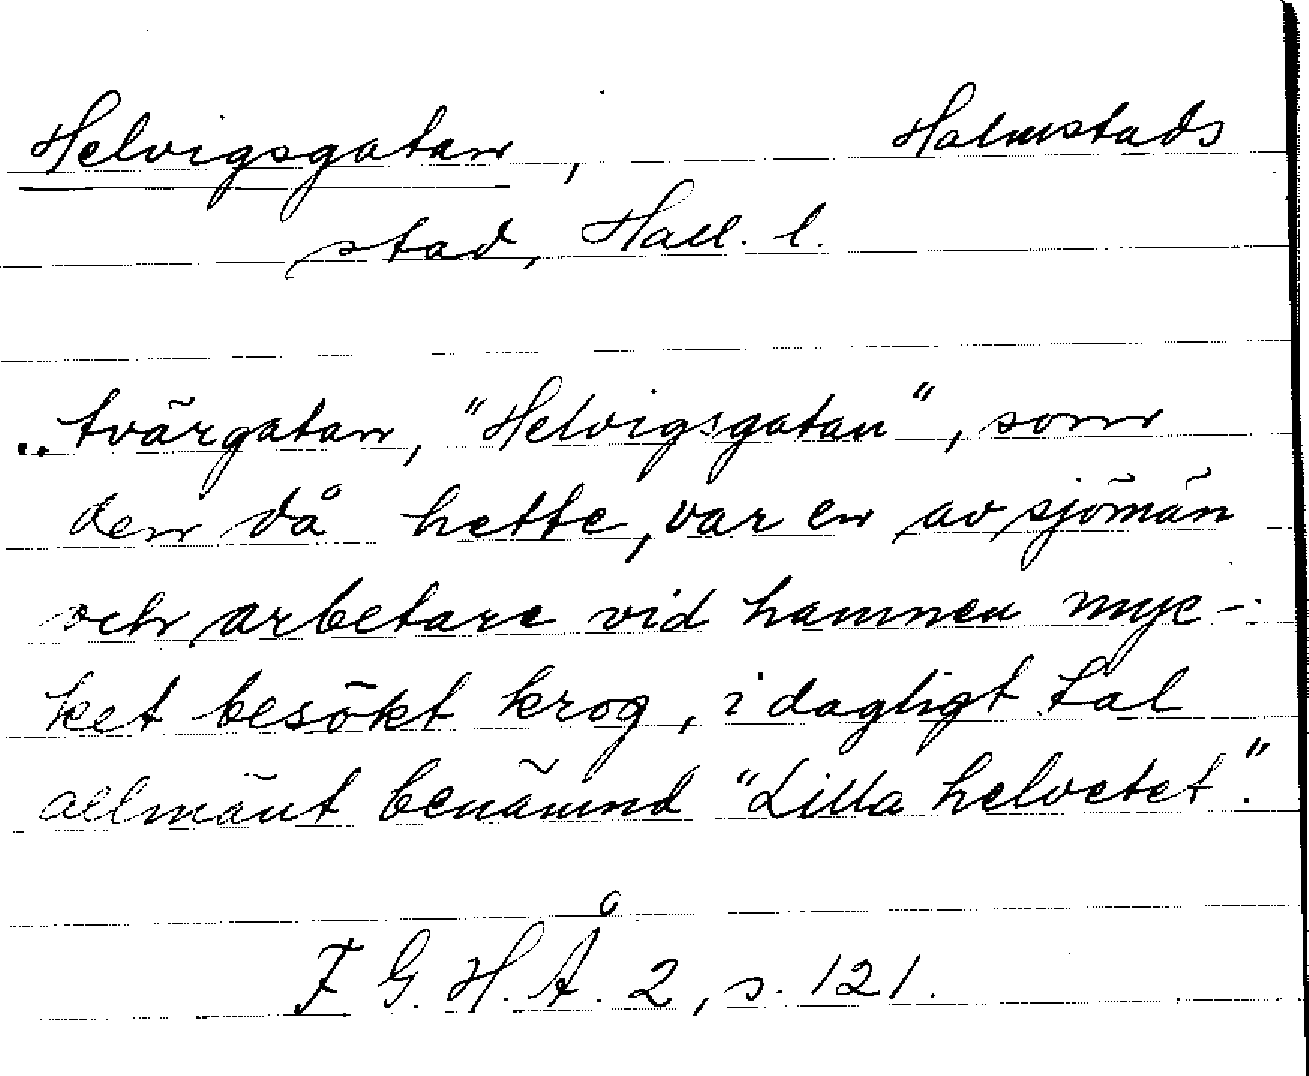 Helvigsgatan, Halmstads
stad, Hall. l.
.. tvärgatan, "Helvigsgatan", som
den då hette, var en av sjömän
och arbetare vid hamnen myc-
ket besökt krog, i dagligt tal
allmänt benämnd "Lilla helvetet".
F G. H. Å. 2, s. 121.